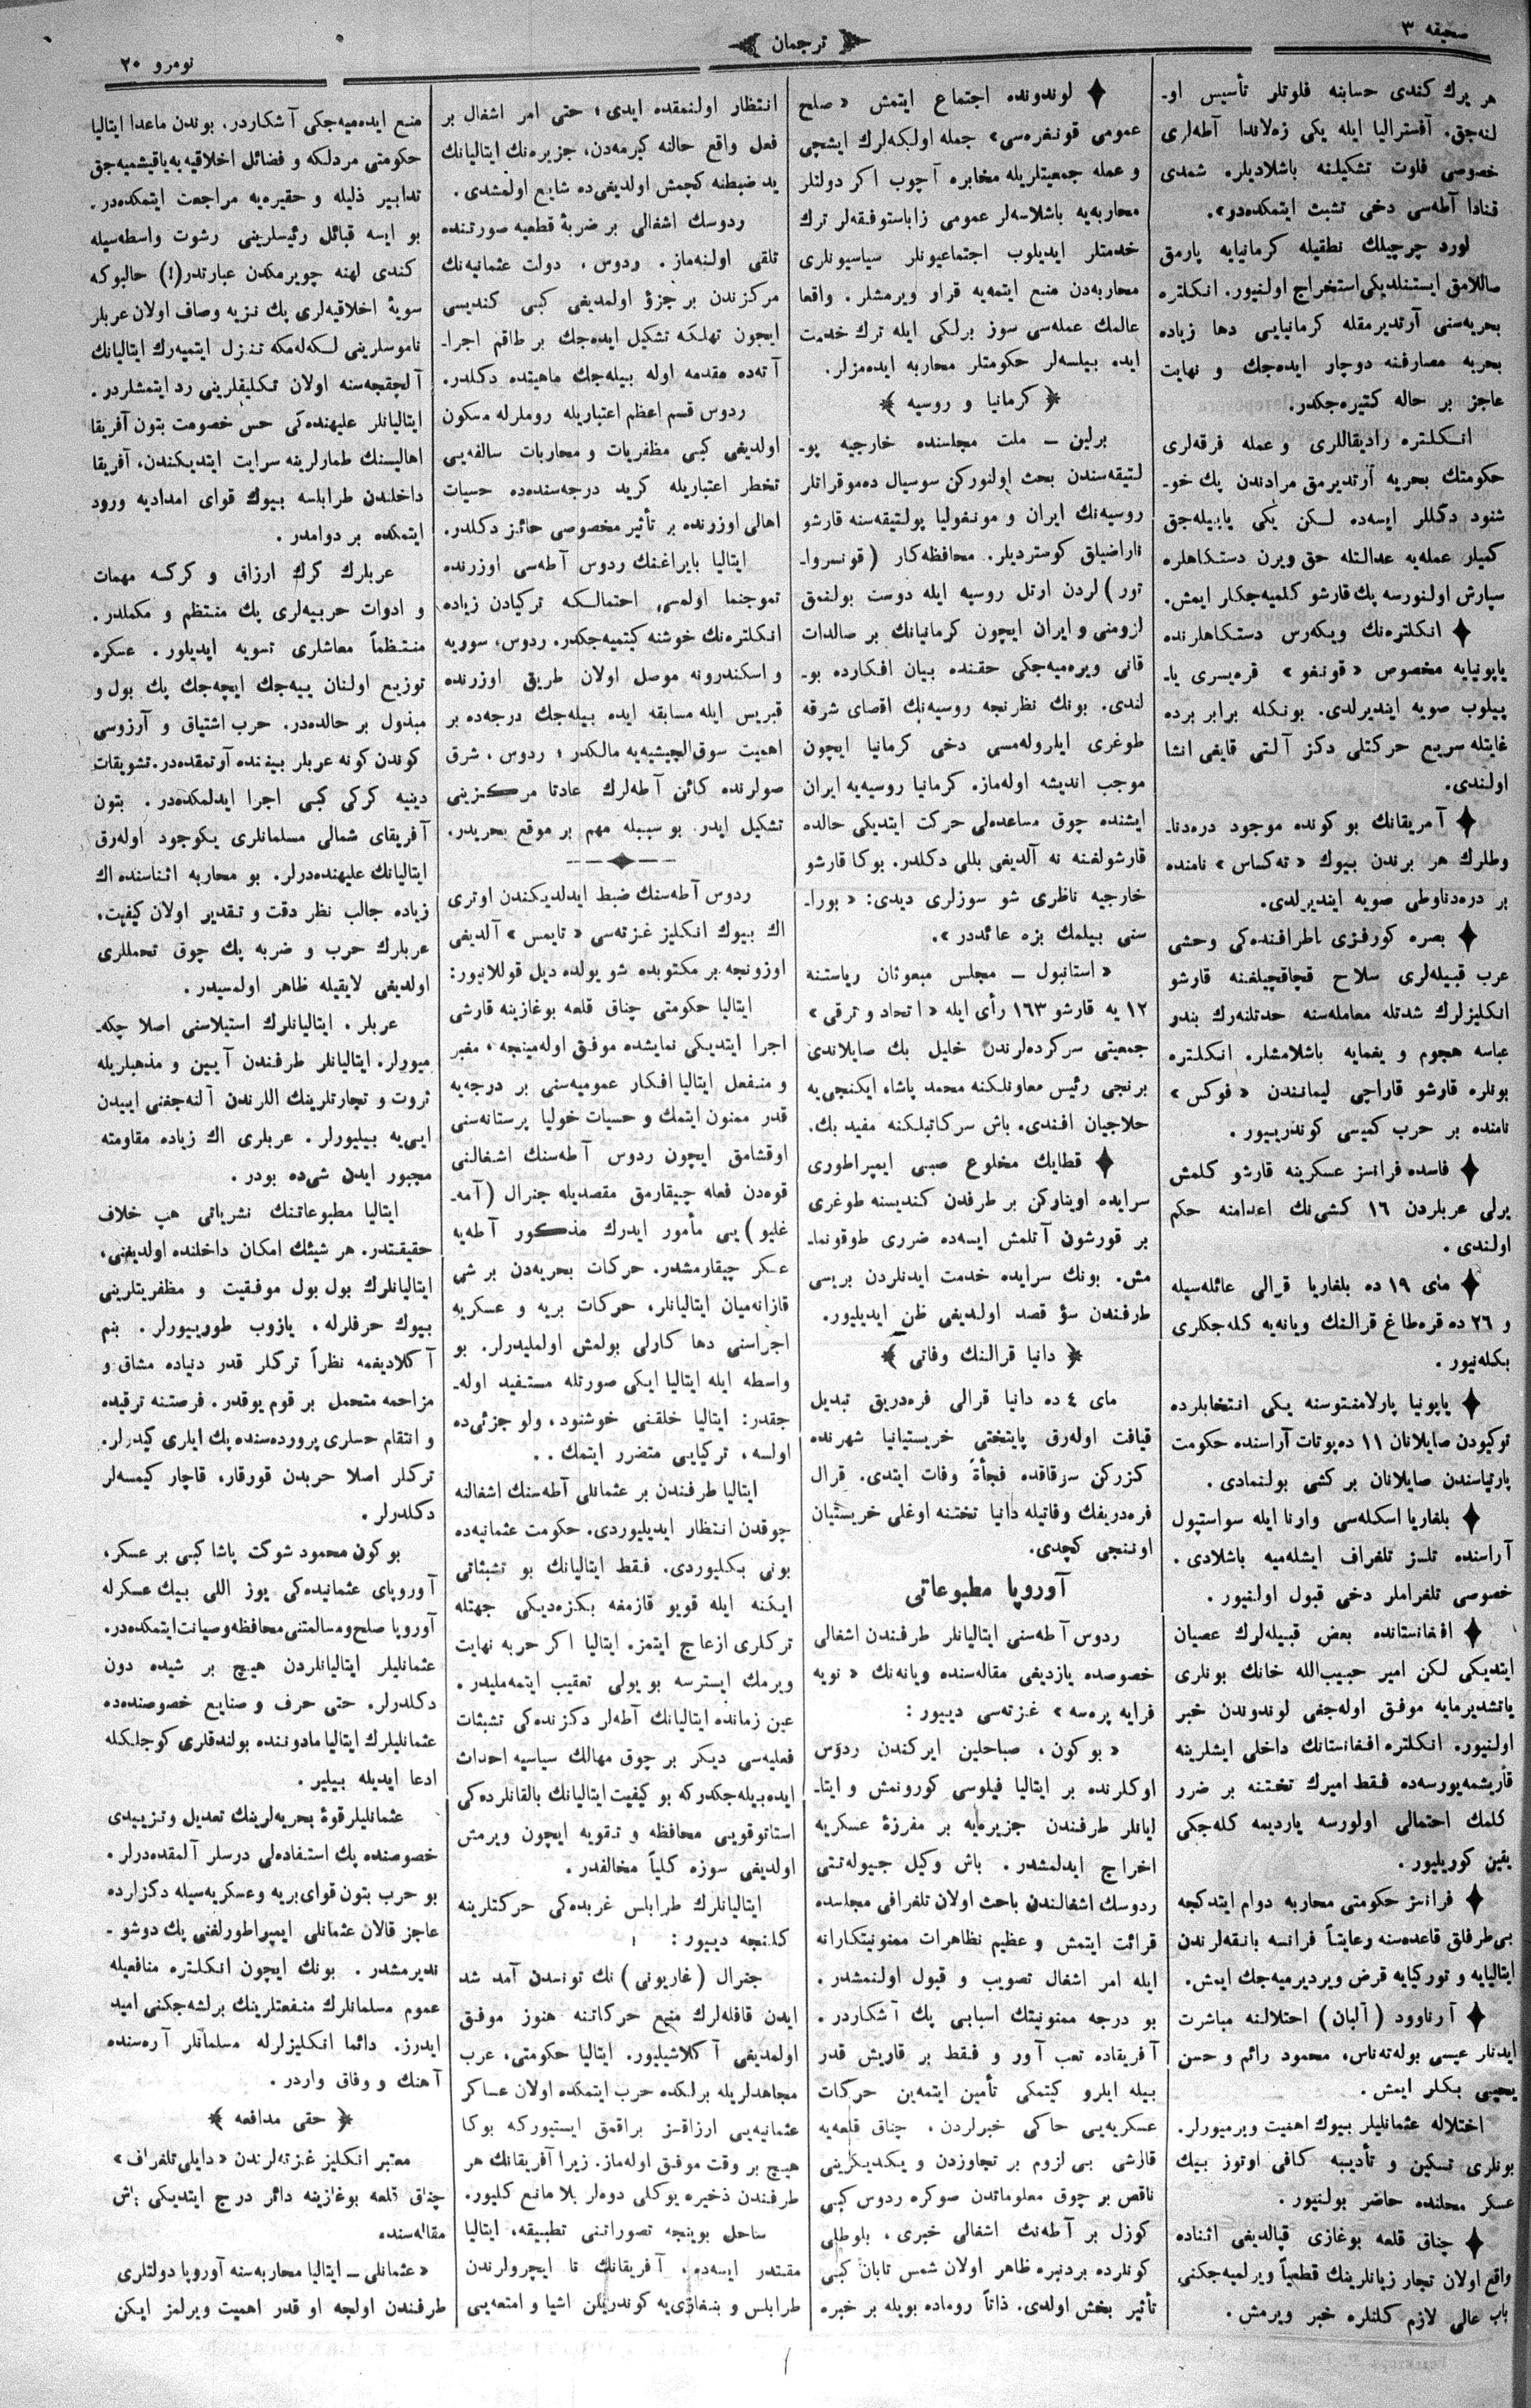 صحیفه ۳
ترجمان
نومرو ۲۰
هر یرك كندی حسابنه فلوتلر تأسیس او-
لنه‌جق. آفسترالیا ایله یكی زه‌لاندا آطه‌لری
خصوصی فلوت تشكیلنه باشلادیلر. شمدی
قنادا آطه‌سی دخی تشبث ایتمكده‌در».
لورد چرچیلك نطقیله كرمانیایه پارمق
صاللامق ایستنلدیكی استخراج اولنیور. انكلتره
بحریه‌سنی آرتدیرمقله كرمانیایی دها زیاده
بحریه مصارفنه دوچار ایده‌جك و نهایت
عاجز بر حاله كتیره‌جكدر.
انكلتره رادیقاللری و عمله فرقه‌لری
حكومتك بحریه آرتدیرمق مرادندن پك خو-
شنود دگللر ایسه‌ده لكن یكی یاپیله‌جق
كمیلر عمله‌یه عدالتله حق ویرن دستكاهلره
سپارش اولنورسه پك قارشو كلمیه‌جكلر ایمش.
انكلتره‌نك ویكه‌رس دستكاهلرنده
یاپونیایه مخصوص «قونغو» قره‌یسری یا-
پیلوب صویه ایندیرلدی. بونكله برابر برده
غایتله سریع حركتلی دكز آلتی قایغی انشا
اولندی.
آمریقانك بو كونده موجود دره‌دنا-
وطلرك هر برندن بیوك «ته‌كساس» نامنده
بر دره‌دناوطی صویه ایندیرلدی.
بصره كورفزی اطرافنده‌كی وحشی
عرب قبیله‌لری سلاح قچاقچیلغنه قارشو
انكلیزلرك شدتله معامله‌سنه حدتلنه‌رك بندر
عباسه هجوم و یغمایه باشلامشلر. انكلتره
بونلره قارشو قاراچی لیمانندن «فوكس»
نامنده بر حرب كمیسی كوندریبور.
فاسده فرانسز عسكرینه قارشو كلمش
یرلی عربلردن ۱۶ كشی‌نك اعدامنه حكم
اولندی.
مای ۱۹ ده بلغاریا قرالی عائله‌سیله
و ۲۶ ده قره‌طاغ قرالنك ویانه‌یه كله‌جكلری
بكله‌نیور.
یاپونیا پارلامنتوسنه یكی انتخابلرده
توكیودن صایلانان ۱۱ ده‌پوتات آراسنده حكومت
پارتیاسندن صایلانان بر كشی بولنمادی.
بلغاریا اسكله‌سی وارنا ایله سواستپول
آراسنده تلسز تلغراف ایشله‌میه باشلادی.
خصوصی تلغراملر دخی قبول اولنیور.
افغانستانده بعض قبیله‌لرك عصیان
ایتدیكی لكن امیر حبیب‌الله خانك بونلری
یاتشدیرمایه موفق اوله‌جغی لوندوندن خبر
اولنیور. انكلتره افغانستانك داخلی ایشلرینه
قاریشمه‌یورسه‌ده فقط امیرك تختنه بر ضرر
كلمك احتمالی اولورسه یاردیمه كله‌جكی
یقین كوریلیور.
فرانسز حكومتی محاربه دوام ایتدكجه
بی‌طرفلق قاعده‌سنه رعایتاً فرانسه بانقه‌لرندن
ایتالیایه و توركیایه قرض ویردیرمیه‌جك ایمش.
آرناوود (آلبان) احتلالنه مباشرت
ایدنلر عیسی بوله‌ته‌ناس، محمود رائم و حسن
یحیی بكلر ایمش.
اختلاله عثمانلیلر بیوك اهمیت ویرمیورلر.
بونلری تسكین و تأدیبه كافی اوتوز بیك
عسكر محلنده حاضر بولنیور.
چناق قلعه بوغازی قپالدیغی اثناده
واقع اولان تجار زیانلرینك قطعیاً ویرلمیه‌جكنی
باب عالی لازم كلنلره خبر ویرمش.
لوندونده اجتماع ایتمش «صلح
عمومی قونغره‌سی» جمله اولكه‌لرك ایشچی
و عمله جمعیتلریله مخابره آچوب اكر دولتلر
محاربه‌یه باشلاسه‌لر عمومی زاباستوفقه‌لر ترك
خدمتلر ایدیلوب اجتماعیونلر سیاسیونلری
محاربه‌دن منع ایتمه‌یه قرار ویرمشلر. واقعا
عالمك عمله‌سی سوز برلكی ایله ترك خدمت
ایده بیلسه‌لر حكومتلر محاربه ایده‌مزلر.
كرمانیا و روسیه
برلین — ملت مجلسنده خارجیه پو-
لتیقه‌سندن بحث اولنوركن سوسیال ده‌موقراتلر
روسیه‌نك ایران و مونغولیا پولتیقه‌سنه قارشو
ناراضیلق كوستردیلر. محافظه‌كار (قونسروا-
تور) لردن ارتل روسیه ایله دوست بولنمق
لزومنی و ایران ایچون كرمانیانك بر صالدات
قانی ویره‌میه‌جكی حقنده بیان افكارده بو-
لندی. بونك نظرنجه روسیه‌نك اقصای شرقه
طوغری ایلروله‌مسی دخی كرمانیا ایچون
موجب اندیشه اوله‌ماز. كرمانیا روسیه‌یه ایران
ایشنده چوق مساعده‌لی حركت ایتدیكی حالده
قارشولغنه نه آلدیغی بللی دكلدر. بوكا قارشو
خارجیه ناظری شو سوزلری دیدی: «بورا-
سنی بیلمك بزه عائددر».
«استانبول — مجلس مبعوثان ریاستنه
۱۲ یه قارشو ۱۶۳ رأی ایله «اتحاد و ترقی»
جمعیتی سركرده‌لرندن خلیل بك صایلاندی
برنجی رئیس معاونلكنه محمد پاشا، ایكنجی‌یه
حلاجیان افندی، باش سركاتبلكنه مفید بك.
قطایك مخلوع صبی ایمپراطوری
سرایده اویناركن بر طرفدن كندیسنه طوغری
بر قورشون آتلمش ایسه‌ده ضرری طوقونما-
مش. بونك سرایده خدمت ایدنلردن بریسی
طرفندن سؤ قصد اولدیغی ظن ایدیلیور.
دانیا قرالنك وفاتی
مای ٤ ده دانیا قرالی فره‌دریق تبدیل
قیافت اوله‌رق پایتختی خریستیانیا شهرنده
كزركن سرقاقده فجأةً وفات ایتدی. قرال
فره‌دریفك وفاتیله دانیا تختنه اوغلی خریستیان
اوننجی كچدی.
آوروپا مطبوعاتی
ردوس آطه‌سنی ایتالیانلر طرفندن اشغالی
خصوصده یازدیغی مقاله‌سنده ویانه‌نك «نویه
فرایه پره‌سه» غزته‌سی دییور:
«بوكون، صباحلین ایركندن ردوس
اوكلرنده بر ایتالیا فیلوسی كورونمش و ایتا-
لیانلر طرفندن جزیره‌یه بر مفرزهٔ عسكریه
اخراج ایدلمشدر. باش وكیل جیوله‌تتی
ردوسك اشغالندن باحث اولان تلغرافی مجلسده
قرائت ایتمش و عظیم تظاهرات ممنونیتكارانه
ایله امر اشغال تصویب و قبول اولنمشدر.
بو درجه ممنونیتك اسبابی پك آشكاردر.
آفریقاده تعب آور و فقط بر قاریش قدر
بیله ایلرو كیتمكی تأمین ایتمه‌ین حركات
عسكریه‌یی حاكی خبرلردن، چناق قلعه‌یه
قارشی بی لزوم بر تجاوزدن و یكدیكرینی
ناقص بر چوق معلوماتدن صوكره ردوس كبی
كوزل بر آطه‌نك اشغالی خبری، بلوطلی
كونلرده بردنبره ظاهر اولان شمس تابان كبی
تأثیر بخش اولدی. ذاتاً روماده بویله بر خبره
انتظار اولنمقده ایدی؛ حتی امر اشغال بر
فعل واقع حالنه كیرمه‌دن، جزیره‌نك ایتالیانك
ید ضبطنه كچمش اولدیغی‌ده شایع اولمشدی.
ردوسك اشغالی بر ضربهٔ قطعیه صورتنده
تلقی اولنه‌ماز. ردوس، دولت عثمانیه‌نك
مركزندن بر جزؤ اولمدیغی كبی كندیسی
ایچون تهلكه تشكیل ایده‌جك بر طاقم اجرا-
آته‌ده مقدمه اوله بیله‌جك ماهیتده دكلدر.
ردوس قسم اعظم اعتباریله روملرله مسكون
اولدیغی كبی مظفریات و محاربات سالفه‌یی
تخطر اعتباریله كرید درجه‌سنده‌ده حسیات
اهالی اوزرنده بر تأثیر مخصوصی حائز دكلدر.
ایتالیا بایراغنك ردوس آطه‌سی اوزرنده
تموجنما اولمسی احتمالكه تركیادن زیاده
انكلتره‌نك خوشنه كیتمیه‌جكدر. ردوس، سوریه
و اسكندرونه موصل اولان طریق اوزرنده
قبریس ایله مسابقه ایده بیله‌جك درجه‌ده بر
اهمیت سوق‌الجیشیه‌یه مالكدر؛ ردوس، شرق
صولرنده كائن آطه‌لرك عادتا مركزینی
تشكیل ایدر. بو سببله مهم بر موقع بحریدر.
ردوس آطه‌سنك ضبط ایدلدیكندن اوتری
اك بیوك انكلیز غزته‌سی «تایمس» آلدیغی
اوزونجه بر مكتوبده شو یولده دیل قوللانیور:
ایتالیا حكومتی چناق قلعه بوغازینه قارشی
اجرا ایتدیكی نمایشده موفق اوله‌مینجه، مغبر
و منفعل ایتالیا افكار عمومیه‌سنی بر درجه‌یه
قدر ممنون ایتمك و حسیات خولیا پرستانه‌سنی
اوقشامق ایچون ردوس آطه‌سنك اشغالنی
قوه‌دن فعله چیقارمق مقصدیله جنرال (آمه-
غلیو) یی مأمور ایدرك مذكور آطه‌یه
عسكر چیقارمشدر. حركات بحریه‌دن بر شی
قازانه‌میان ایتالیانلر، حركات بریه و عسكریه
اجراسنی دها كارلی بولمش اولملیدرلر. بو
واسطه ایله ایتالیا ایكی صورتله مستفید اوله-
جقدر: ایتالیا خلقنی خوشنود، ولو جزئی‌ده
اولسه، تركیایی متضرر ایتمك..
ایتالیا طرفندن بر عثمانلی آطه‌سنك اشغالنه
چوقدن انتظار ایدیلیوردی. حكومت عثمانیه‌ده
بونی بكلیوردی. فقط ایتالیانك بو تشبثاتی
ایكنه ایله قویو قازمغه بكزه‌دیكی جهتله
تركلری ازعاج ایتمز. ایتالیا اكر حربه نهایت
ویرمك ایسترسه بو یولی تعقیب ایتمه‌ملیدر.
عین زمانده ایتالیانك آطه‌لر دكزنده‌كی تشبثات
فعلیه‌سی دیكر بر چوق مهالك سیاسیه احداث
ایده‌بیله‌جكدركه بو كیفیت ایتالیانك بالقانلرده‌كی
استاتوقویی محافظه و تقویه ایچون ویرمش
اولدیغی سوزه كلیاً مخالفدر.
ایتالیانلرك طرابلس غربده‌كی حركتلرینه
كلنجه دییور:
جنرال (غاریونی) نك تونسدن آمد شد
ایدن قافله‌لرك منع حركاتنه هنوز موفق
اولمدیغی آكلاشیلیور. ایتالیا حكومتی، عرب
مجاهدلریله برلكده حرب ایتمكده اولان عساكر
عثمانیه‌یی ارزاقسز براقمق ایستیوركه بوكا
هیچ بر وقت موفق اوله‌ماز. زیرا آفریقانك هر
طرفندن ذخیره یوكلی دوه‌لر بلا مانع كلیور.
ساحل بوینجه تصوراتنی تطبیقه، ایتالیا
مقتدر ایسه‌ده، آفریقانك تا ایچرولرندن
طرابلس و بنغازی‌یه كوندریلن اشیا و امتعه‌یی
منع ایده‌میه‌جكی آشكاردر. بوندن ماعدا ایتالیا
حكومتی مردلكه و فضائل اخلاقیه‌یه یاقیشمیه‌جق
تدابیر ذلیله و حقیره‌یه مراجعت ایتمكده‌در.
بو ایسه قبائل رئیسلرینی رشوت واسطه‌سیله
كندی لهنه چویرمكدن عبارتدر(!) حالبوكه
سویهٔ اخلاقیه‌لری پك نزیه وصاف اولان عربلر
ناموسلرینی لكه‌له‌مكه تنزل ایتمیه‌رك ایتالیانك
آلچقجه‌سنه اولان تكلیفلرینی رد ایتمشلردر.
ایتالیانلر علیهنده‌كی حس خصومت بتون آفریقا
اهالیسنك طمارلرینه سرایت ایتدیكندن، آفریقا
داخلندن طرابلسه بیوك قوای امدادیه ورود
ایتمكده بر دوامدر.
عربلرك كرك ارزاق و كركسه مهمات
و ادوات حربیه‌لری پك منتظم و مكملدر.
منتظماً معاشلری تسویه ایدیلور. عسكره
توزیع اولنان ییه‌جك ایچه‌جك پك بول و
مبذول بر حالده‌در. حرب اشتیاق و آرزوسی
كوندن كونه عربلر بیننده آرتمقده‌در. تشویقات
دینیه كركی كبی اجرا ایدلمكده‌در. بتون
آفریقای شمالی مسلمانلری یكوجود اوله‌رق
ایتالیانك علیهنده‌درلر. بو محاربه اثناسنده اك
زیاده جالب نظر دقت و تقدیر اولان كیفیت،
عربلرك حرب و ضربه پك چوق تحمللری
اولدیغی لایقیله ظاهر اولمسیدر.
عربلر، ایتالیانلرك استیلاسنی اصلا چكه-
میورلر. ایتالیانلر طرفندن آیین و مذهبلریله
ثروت و تجارتلرینك اللرندن آلنه‌جغنی اییدن
ایی‌یه بیلیورلر. عربلری اك زیاده مقاومته
مجبور ایدن شی‌ده بودر.
ایتالیا مطبوعاتنك نشریاتی هپ خلاف
حقیقتدر. هر شیئك امكان داخلنده اولدیغنی،
ایتالیانلرك بول بول موفقیت و مظفریتلرینی
بیوك حرفلرله، یازوب طورییورلر. بنم
آكلادیغمه نظراً تركلر قدر دنیاده مشاق و
مزاحمه متحمل بر قوم یوقدر. فرصتنه ترقبده
و انتقام حسلری پرورده‌سنده پك ایلری كیدرلر.
تركلر اصلا حربدن قورقار، قاچار كیمسه‌لر
دكلدرلر.
بوكون محمود شوكت پاشا كبی بر عسكر،
آوروپای عثمانیده‌كی یوز اللی بیك عسكرله
آوروپا صلح و مسالمتنی محافظه و صیانت ایتمكده‌در.
عثمانلیلر ایتالیانلردن هیچ بر شیده دون
دكلدرلر. حتی حرف و صنایع خصوصنده‌ده
عثمانلیلرك ایتالیا مادوننده بولندقلری كوجلكله
ادعا ایدیله بیلیر.
عثمانلیلر قوهٔ بحریه‌لرینك تعدیل و تزییدی
خصوصنده پك استفاده‌لی درسلر آلمقده‌درلر.
بو حرب بتون قوای بریه و عسكریه‌سیله دكزارده
عاجز قالان عثمانلی ایمپراطورلغنی پك دوشو-
ندیرمشدر. بونك ایچون انكلتره منافعیله
عموم مسلمانلرك منفعتلرینك برلشه‌جكنی امید
ایدرز. دائما انكلیزلرله مسلمانلر آره‌سنده
آهنك و وفاق واردر.
حقی مدافعه
معتبر انكلیز غزته‌لرندن «دایلی تلغراف»
چناق قلعه بوغازینه دائر درج ایتدیكی باش
مقاله‌سنده
«عثمانلی — ایتالیا محاربه‌سنه آوروپا دولتلری
طرفندن اولجه او قدر اهمیت ویرلمز ایكن